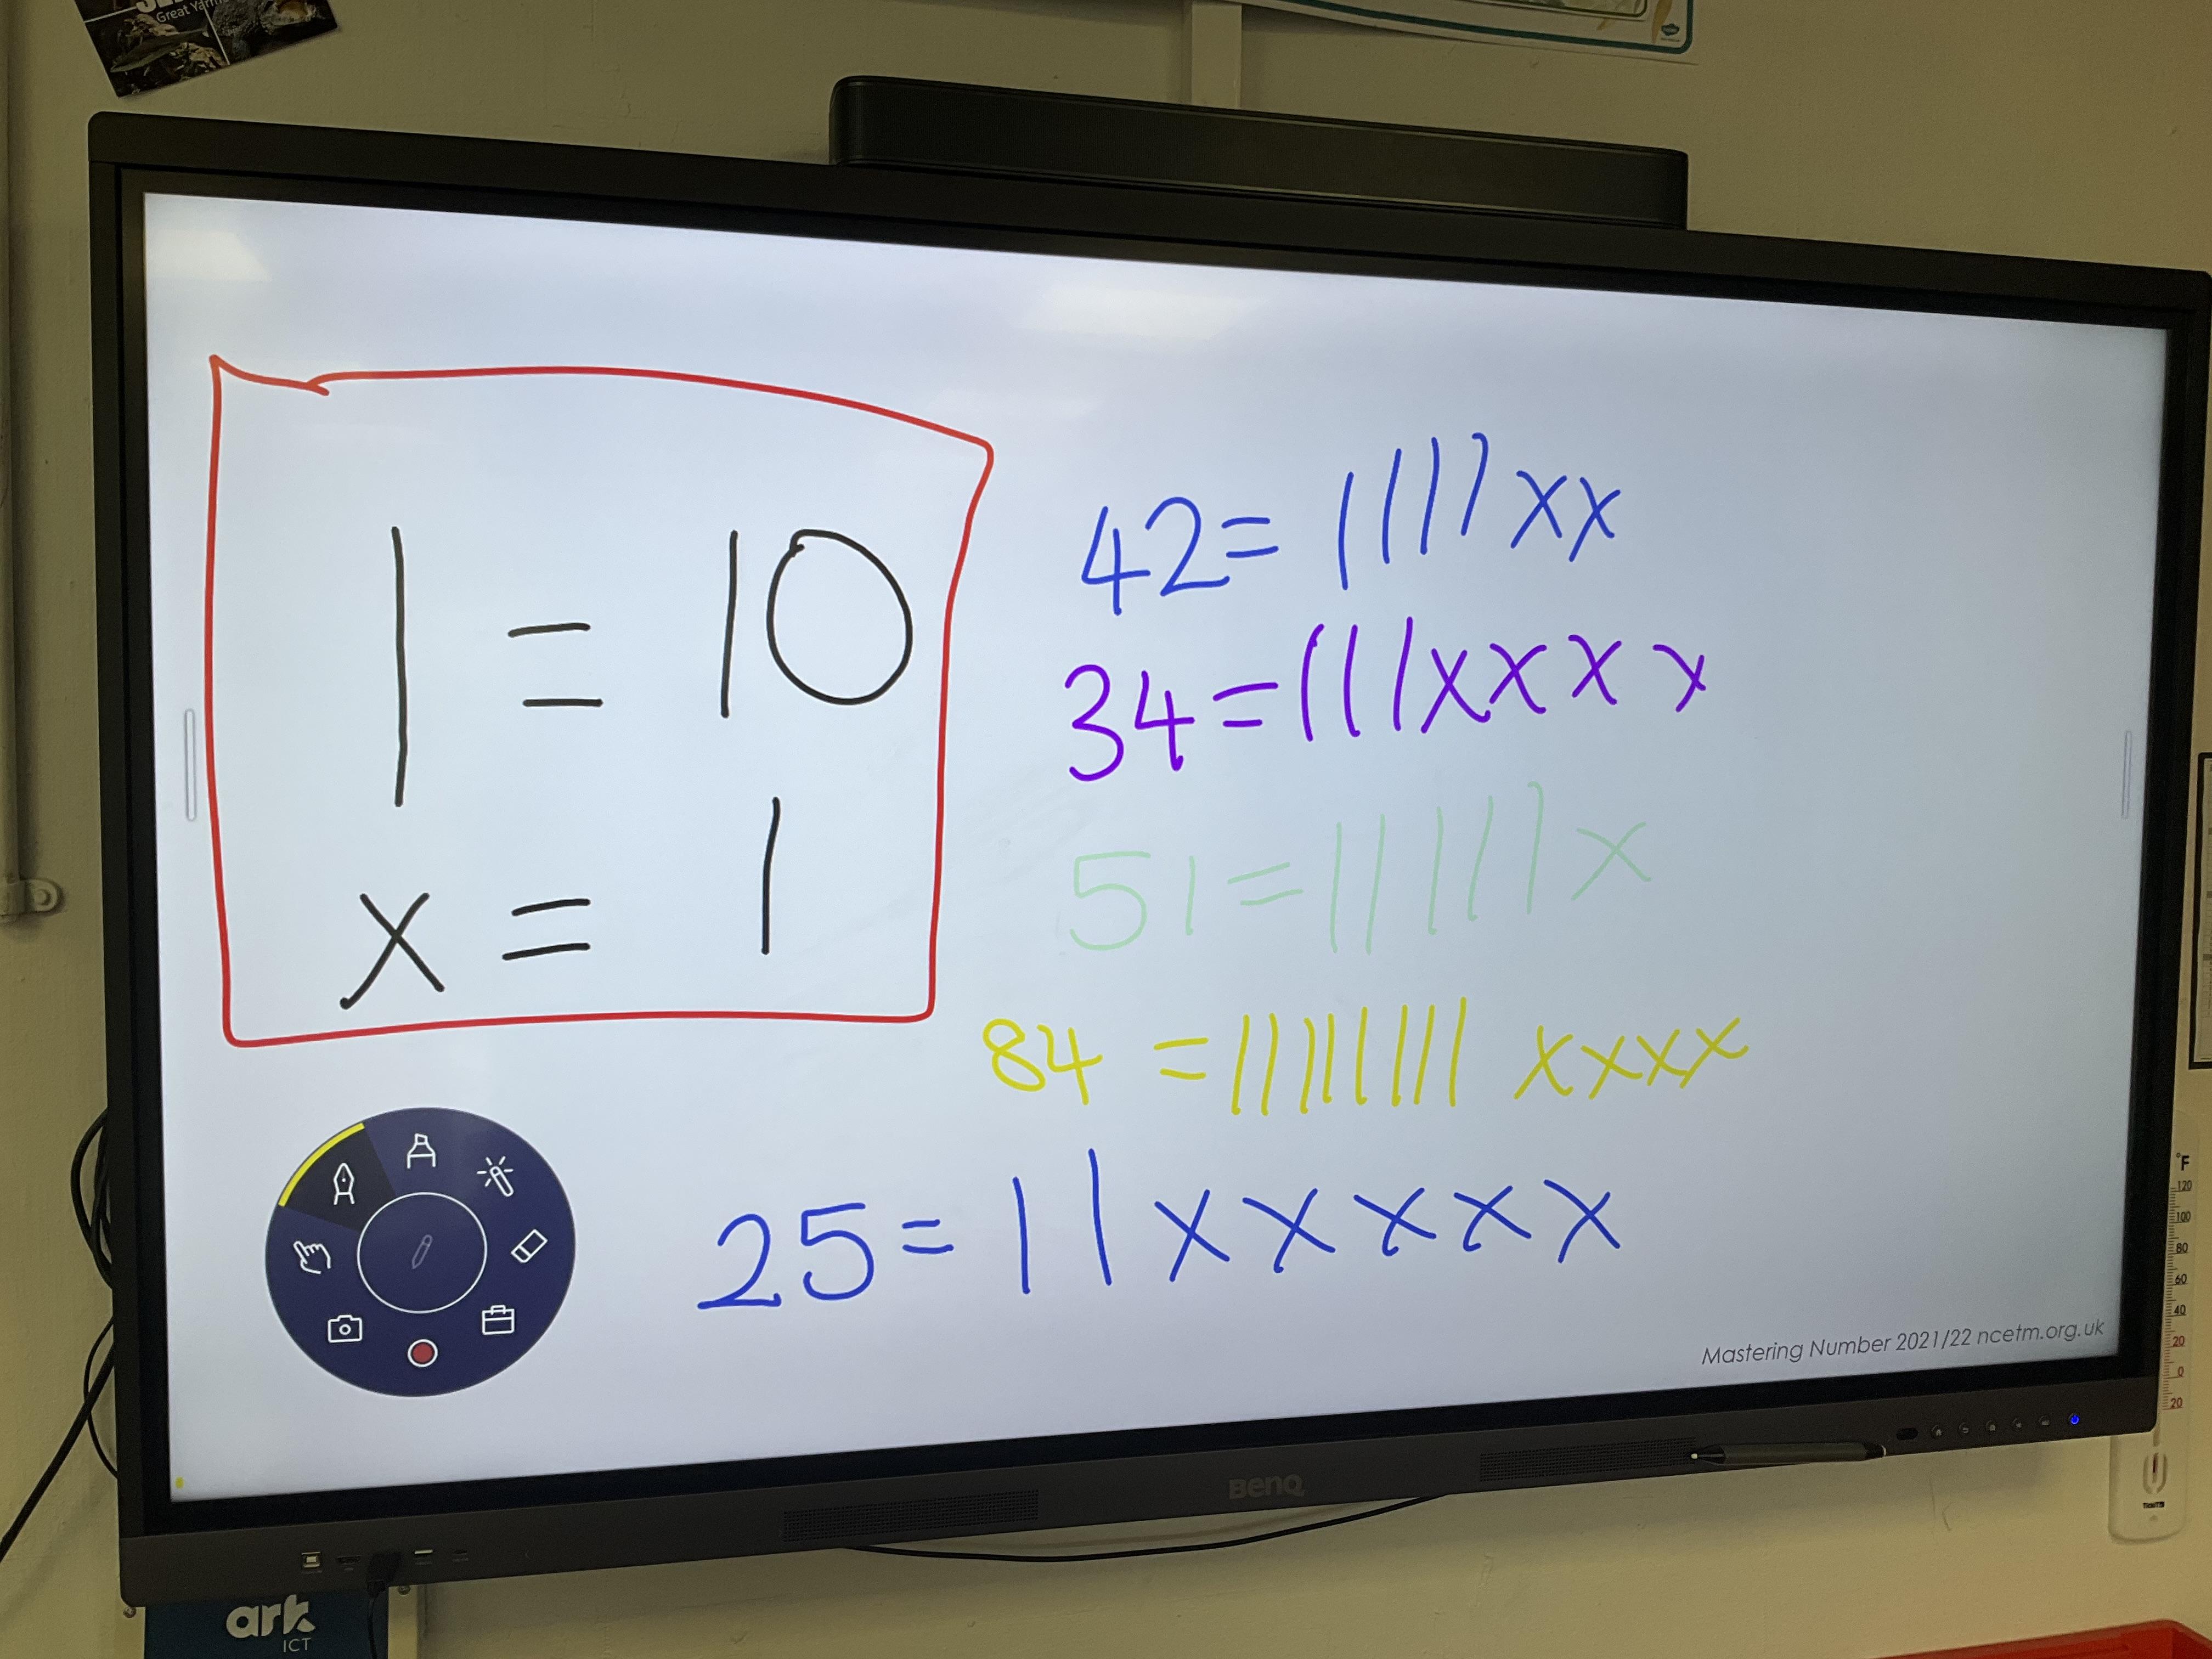 Great Yarm
| = 10
x = 1
42 = ||||xx
34 = |||xxxx
51 = |||||x
84 = |||||||| xxxx
25 = ||xxxxx
Mastering Number 2021/22 ncetm.org.uk
BenQ
ark
ICT
°F
120
100
80
60
40
20
0
20